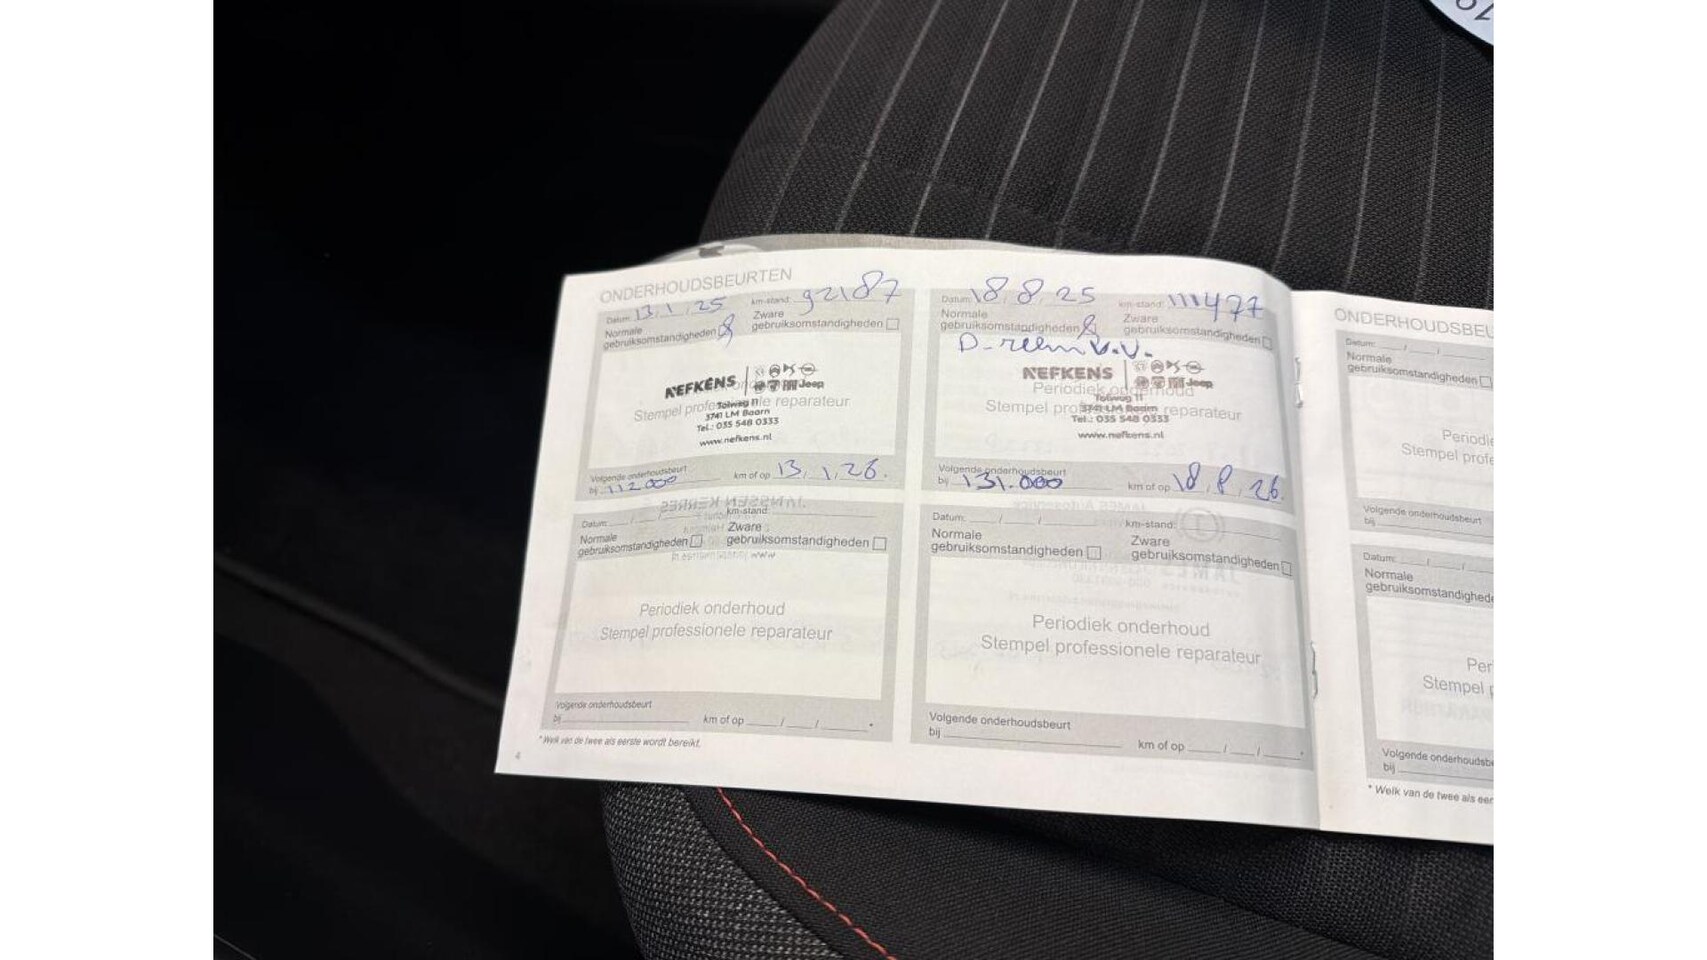 ONDERHOUDSBEURTEN
Datum: 13 / 1 / 25 km-stand: 92187
Normale gebruiksomstandigheden
Zware gebruiksomstandigheden
NEFKENS Jeep
Stempel professionele reparateur
Tolweg 11
3741 LM Baarn
Tel.: 035 548 0333
www.nefkens.nl
Volgende onderhoudsbeurt
bij 112.000 km of op 13 / 1 / 26.
Datum: 18 / 8 / 25 km-stand: 111477
Normale gebruiksomstandigheden
Zware gebruiksomstandigheden
D-riem v.v.
NEFKENS Jeep
Periodiek onderhoud
Stempel professionele reparateur
Tolweg 11
3741 LM Baarn
Tel.: 035 548 0333
www.nefkens.nl
Volgende onderhoudsbeurt
bij 131.000 km of op 18 / 8 / 26.
Datum: ___ / ___ / ___ km-stand:
Normale gebruiksomstandigheden
Zware gebruiksomstandigheden
Periodiek onderhoud
Stempel professionele reparateur
Volgende onderhoudsbeurt
bij ___ km of op ___ / ___ / ___ *
Datum: ___ / ___ / ___ km-stand:
Normale gebruiksomstandigheden
Zware gebruiksomstandigheden
Periodiek onderhoud
Stempel professionele reparateur
Volgende onderhoudsbeurt
bij ___ km of op ___ / ___ / ___ *
* Welk van de twee als eerste wordt bereikt.
4
ONDERHOUDSBEU
Datum: ___ / ___ / ___
Normale
gebruiksomstandigheden
Periodie
Stempel profe
Volgende onderhoudsbeurt
bij
Datum: ___ / ___ / ___
Normale
gebruiksomstandighede
Per
Stempel p
Volgende onderhoudsbe
bij
* Welk van de twee als eer